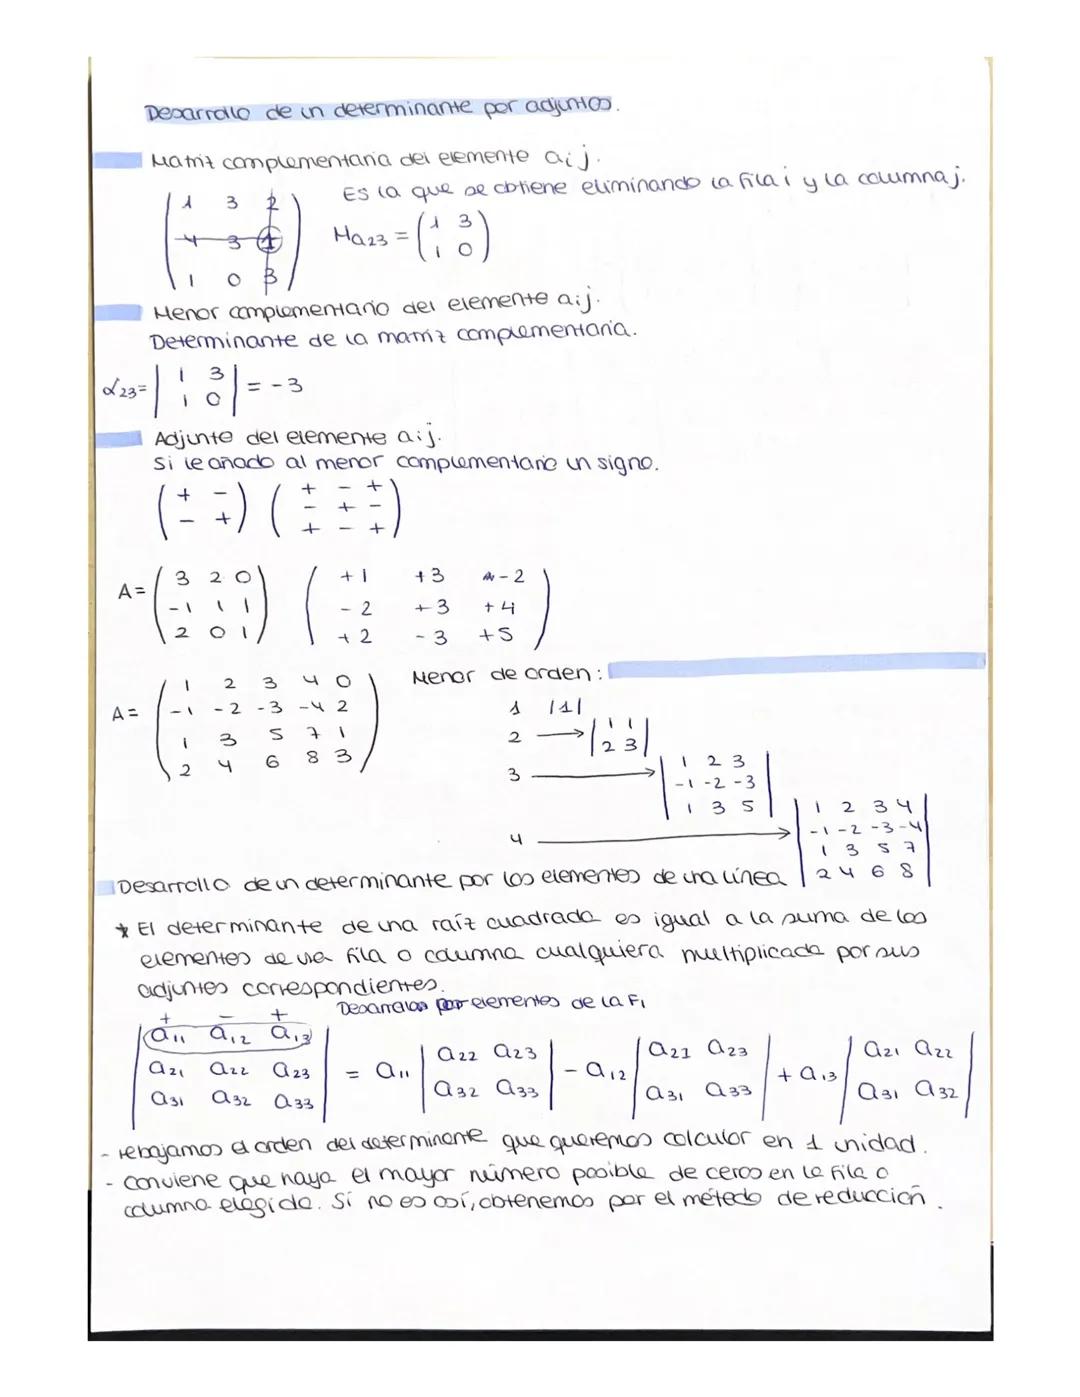 Desarrollo de un determinante por adjuntos.
Matriz complementaria del elemento aij.
Es la que se obtiene eliminando la fila i y la columna j.
1 3 2
4 3 1
1 0 3
Ma23 = ( 1 3
1 0 )
Menor complementario del elemento aij.
Determinante de la matriz complementaria.
α23= | 1 3
1 0 | = -3
Adjunto del elemento aij.
Si le añado al menor complementario un signo.
( + -
- + )
( + - +
- + -
+ - + )
A= ( 3 2 0
-1 1 1
2 0 1 )
( +1 +3 -2
-2 +3 +4
+2 -3 +5 )
A= ( 1 2 3 4 0
-1 -2 -3 -4 2
1 3 5 7 1
2 4 6 8 3 )
Menor de orden:
1 |1|
2 → | 1 1
2 3 |
3 → | 1 2 3
-1 -2 -3
1 3 5 |
4 → | 1 2 3 4
-1 -2 -3 -4
1 3 5 7
2 4 6 8 |
Desarrollo de un determinante por los elementos de una línea
* El determinante de una raíz cuadrada es igual a la suma de los
elementos de una fila o columna cualquiera multiplicada por sus
adjuntos correspondientes.
Desarrollos por elementos de la F1
+ - +
| a11 a12 a13
a21 a22 a23
a31 a32 a33 |
= a11 | a22 a23
a32 a33 |
- a12 | a21 a23
a31 a33 |
+ a13 | a21 a22
a31 a32 |
- rebajamos el orden del determinante que queremos calcular en 1 unidad.
- conviene que haya el mayor número posible de ceros en la fila o
columna elegida. Si no es así, obtenemos por el método de reducción.